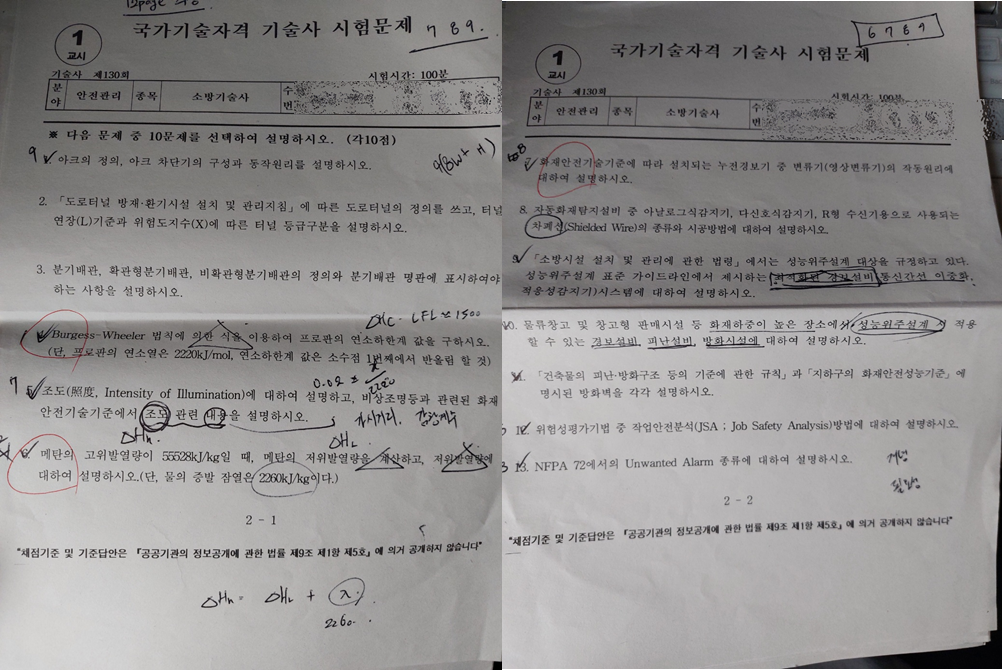 국가기술자격 기술사 시험문제
7 8 9.
1
교시
기술사 제130회
시험시간: 100분
분야 안전관리 종목 소방기술사 수번
※ 다음 문제 중 10문제를 선택하여 설명하시오. (각10점)
9 아크의 정의, 아크 차단기의 구성과 동작원리를 설명하시오.
2. 「도로터널 방재·환기시설 설치 및 관리지침」에 따른 도로터널의 정의를 쓰고, 터널
연장(L)기준과 위험도지수(X)에 따른 터널 등급구분을 설명하시오.
3. 분기배관, 확관형분기배관, 비확관형분기배관의 정의와 분기배관 명판에 표시하여야
하는 사항을 설명하시오.
Burgess-Wheeler 법칙에 의한 식을 이용하여 프로판의 연소하한계 값을 구하시오.
(단, 프로판의 연소열은 2220kJ/mol, 연소하한계 값은 소수점 번째에서 반올림 할 것)
7 5. 조도(照度, Intensity of Illumination)에 대하여 설명하고, 비상조명등과 관련된 화재
안전기술기준에서 조도 관련 내용을 설명하시오.
ΔHL
6. 메탄의 고위발열량이 55528kJ/kg일 때, 메탄의 저위발열량을 계산하고, 저위발열량에
대하여 설명하시오.(단, 물의 증발 잠열은 2260kJ/kg이다.)
2 - 1
"채점기준 및 기준답안은 「공공기관의 정보공개에 관한 법률 제9조 제1항 제5호」에 의거 공개하지 않습니다"
ΔHL + λ
2260.
6 7 8 9
국가기술자격 기술사 시험문제
1
교시
기술사 제130회
시험시간: 100분
분야 안전관리 종목 소방기술사 수번
7. 화재안전기술기준에 따라 설치되는 누전경보기 중 변류기(영상변류기)의 작동원리에
대하여 설명하시오.
8. 자동화재탐지설비 중 아날로그식감지기, 다신호식감지기, R형 수신기용으로 사용되는
차폐선(Shielded Wire)의 종류와 시공방법에 대하여 설명하시오.
9. 「소방시설 설치 및 관리에 관한 법령」에서는 성능위주설계 대상을 규정하고 있다.
성능위주설계 표준 가이드라인에서 제시하는 최적화된 경보설비(통신간선 이중화,
적응성감지기)시스템에 대하여 설명하시오.
10. 물류창고 및 창고형 판매시설 등 화재하중이 높은 장소에서 성능위주설계 시 적용
할 수 있는 경보설비, 피난설비, 방화시설에 대하여 설명하시오.
11. 「건축물의 피난·방화구조 등의 기준에 관한 규칙」과 「지하구의 화재안전성능기준」에
명시된 방화벽을 각각 설명하시오.
12. 위험성평가기법 중 작업안전분석(JSA ; Job Safety Analysis)방법에 대하여 설명하시오.
13. NFPA 72에서의 Unwanted Alarm 종류에 대하여 설명하시오.
2 - 2
"채점기준 및 기준답안은 「공공기관의 정보공개에 관한 법률 제9조 제1항 제5호」에 의거 공개하지 않습니다"